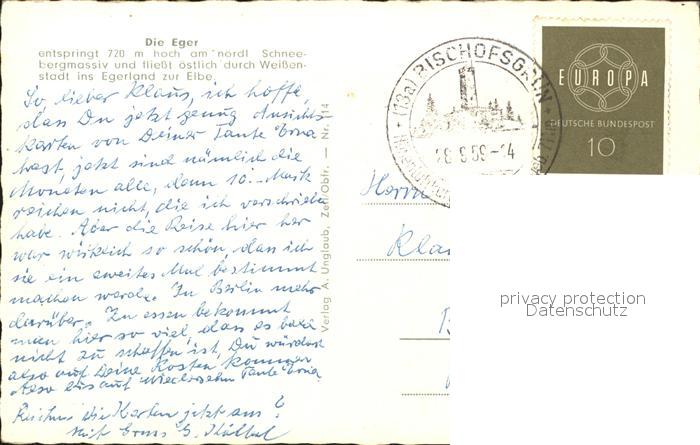 Die Eger
entspringt 720 m hoch am nördl Schnee-
bergmassiv und fließt östlich durch Weißen-
stadt ins Egerland zur Elbe.
So, lieber Klaus, ich hoffe,
dass Du jetzt genug Ansichts-
karten von Deiner Tante Erna
hast, jetzt sind nämlich die
Moneten alle, denn 10.- Mark
reichen nicht, die ich verschrieben
habe. Aber die Reise hier her
war wirklich so schön, dass ich
sie ein zweites Mal bestimmt
machen werde. In Berlin mehr
darüber. Zu essen bekommt
man hier so viel, dass es bald
nicht zu schaffen ist, Du würdest
also auf Deine Kosten kommen
Also bis auf Wiedersehn Tante Erna
Reichen die Karten jetzt aus?
mit Gruss G.
Verlag A. Unglaub, Zell/Obfr. — Nr. 14
(13a) BISCHOFSGRÜN
18.9.59-14
EUROPA
DEUTSCHE BUNDESPOST
10
Herrn
Kla
privacy protection
Datenschutz